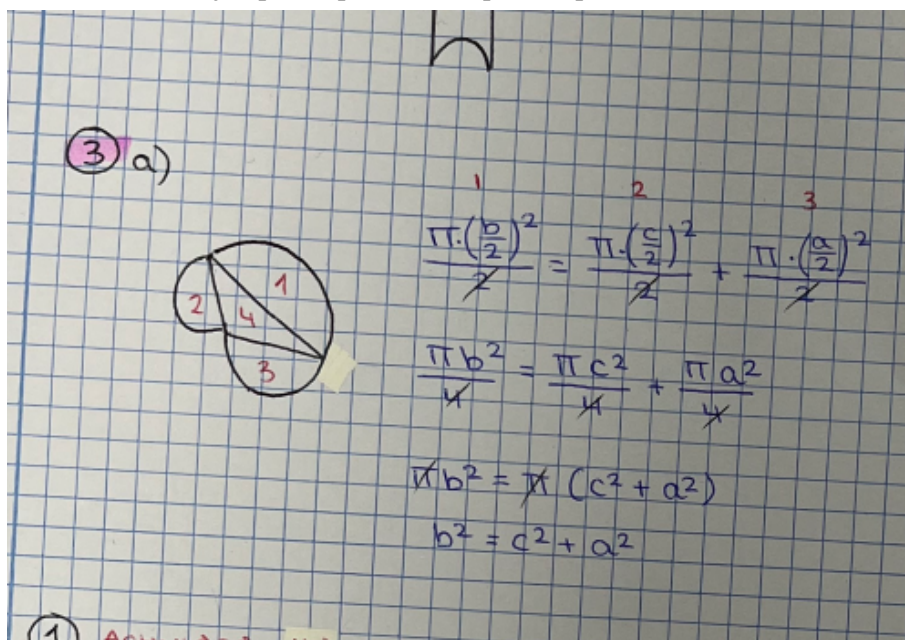 3 a)
1 2 3
π·(b/2)²/2 = π·(c/2)²/2 + π·(a/2)²/2
1
2 4
3
πb²/4 = πc²/4 + πa²/4
πb² = π (c² + a²)
b² = c² + a²
1